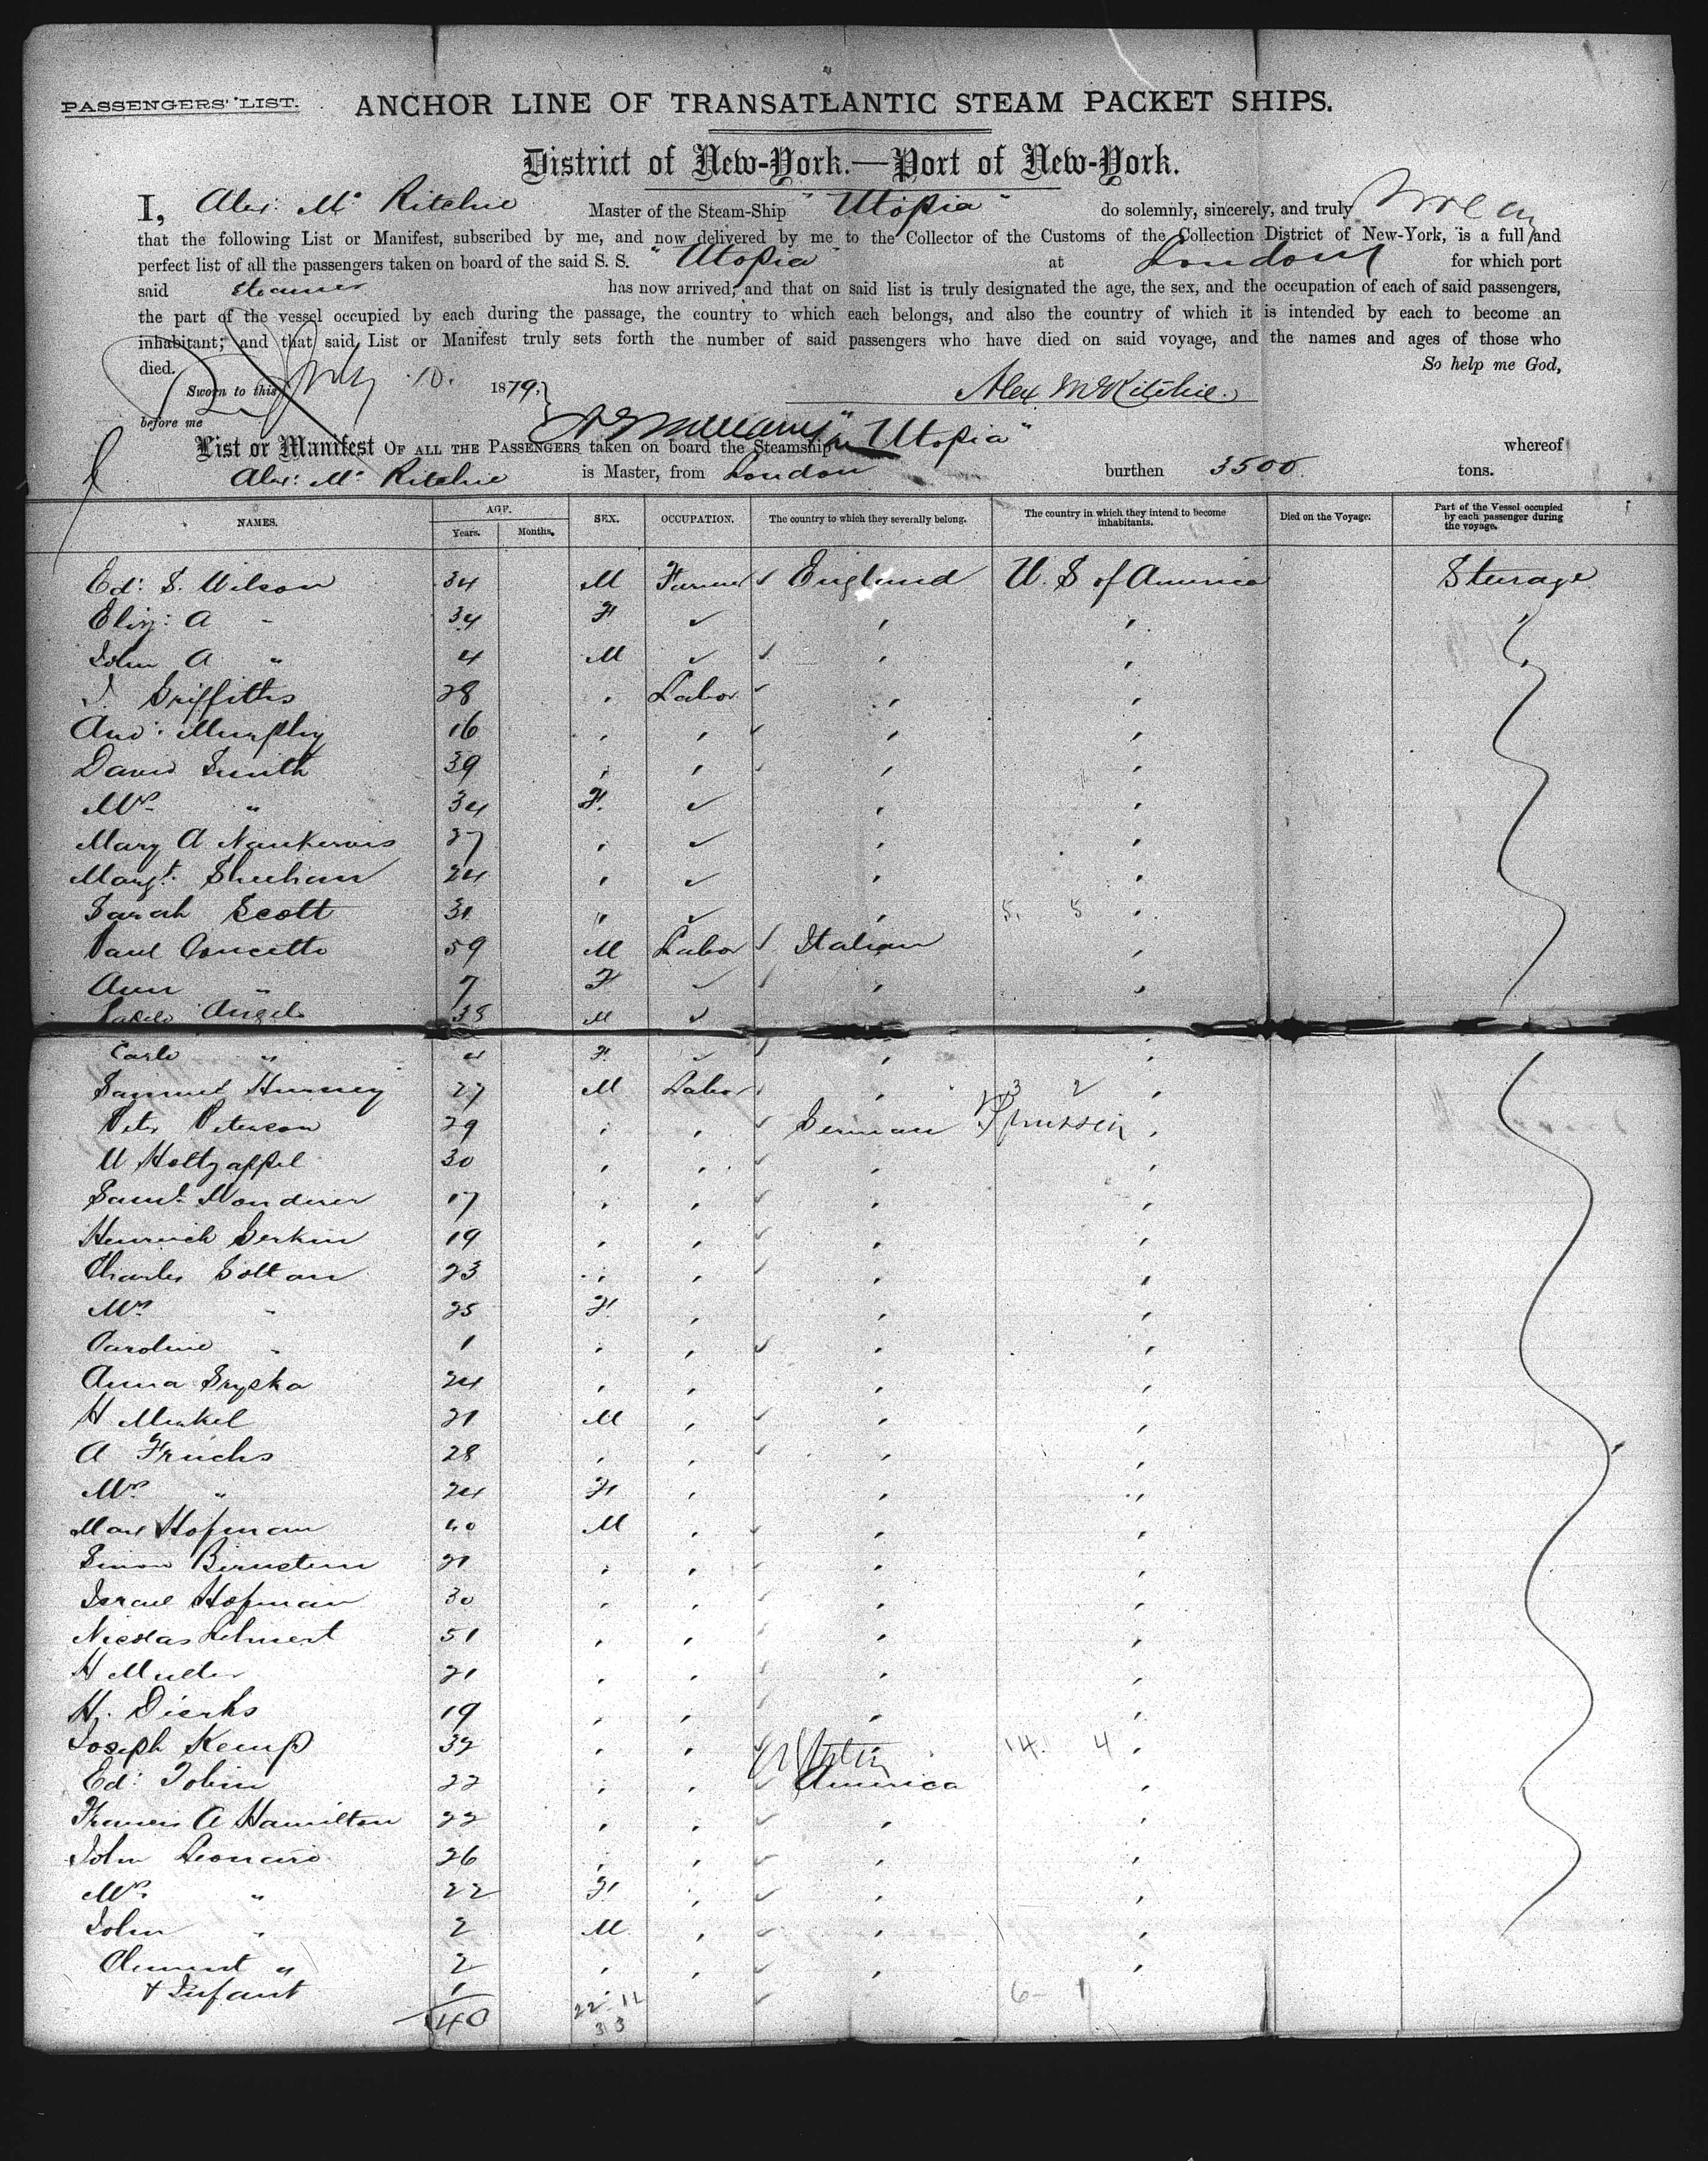 PASSENGERS' LIST.
ANCHOR LINE OF TRANSATLANTIC STEAM PACKET SHIPS.
District of New-York.—Port of New-York.
I, Alex: Mc Ritchie Master of the Steam-Ship "Utopia" do solemnly, sincerely, and truly swear
that the following List or Manifest, subscribed by me, and now delivered by me to the Collector of the Customs of the Collection District of New-York, is a full and
perfect list of all the passengers taken on board of the said S. S. "Utopia" at London for which port
said Steamer has now arrived; and that on said list is truly designated the age, the sex, and the occupation of each of said passengers,
the part of the vessel occupied by each during the passage, the country to which each belongs, and also the country of which it is intended by each to become an
inhabitant; and that said List or Manifest truly sets forth the number of said passengers who have died on said voyage, and the names and ages of those who
died. So help me God,
Sworn to this July 10. 1879. Alex McRitchie.
before me
List or Manifest OF ALL THE PASSENGERS taken on board the Steamship "Utopia" whereof
Alex: Mc Ritchie is Master, from London burthen 3500 tons.
NAMES. AGE. Years. Months. SEX. OCCUPATION. The country to which they severally belong. The country in which they intend to become inhabitants. Died on the Voyage. Part of the Vessel occupied by each passenger during the voyage.
Ed: S. Wilson 34 M Farmer England U. S of America Steerage
Eliz: A " 34 F
John A " 4 M
Griffiths 28 " Labor
And: Murphy 16
David Smith 39
Mrs " 34 F
Mary A Nankervis 27
Margt. Sheehan 24
Sarah Scott 31 " 5 5
Paul Concetto 59 M Labor Italian
Ann " 7 F
Angelo 38 M
Carlo " 4 F
Samuel 27 M Labor 3 2
Peter Peterson 29 German Prussen
Holtzappel 30
Saml. 17
Heinrich Gerkin 19
Charles Soltan 23
Mrs " 25 F
Caroline " 1
Anna 24
H Menkel 21 M
A 28
Mrs " 24 F
Hofman 40 M
Simon Bernstein 21
Israel Hofman 30
Nicolas 51
H Muller 21
H. Dierks 19
Joseph Kemp 32 14 4
Ed: Tobin 22 America
Francis A Hamilton 22
John Leonard 26
Mrs " 22 F
John " 2 M
Clement " 2
+ Infant 1 6 1
40 22 11
33